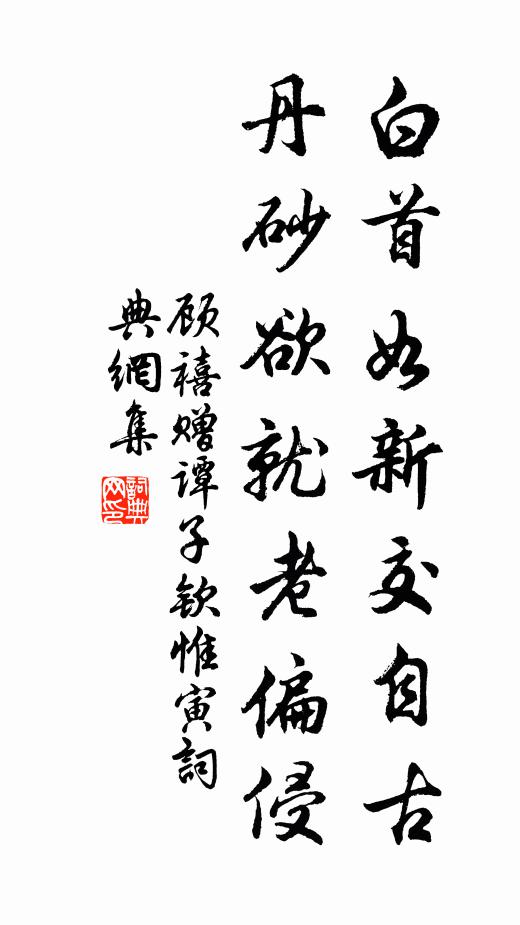 白首如新交自古
丹砂欲就老偏侵
顾禧赠谭子钦惟寅詞
典網集
詞典网印